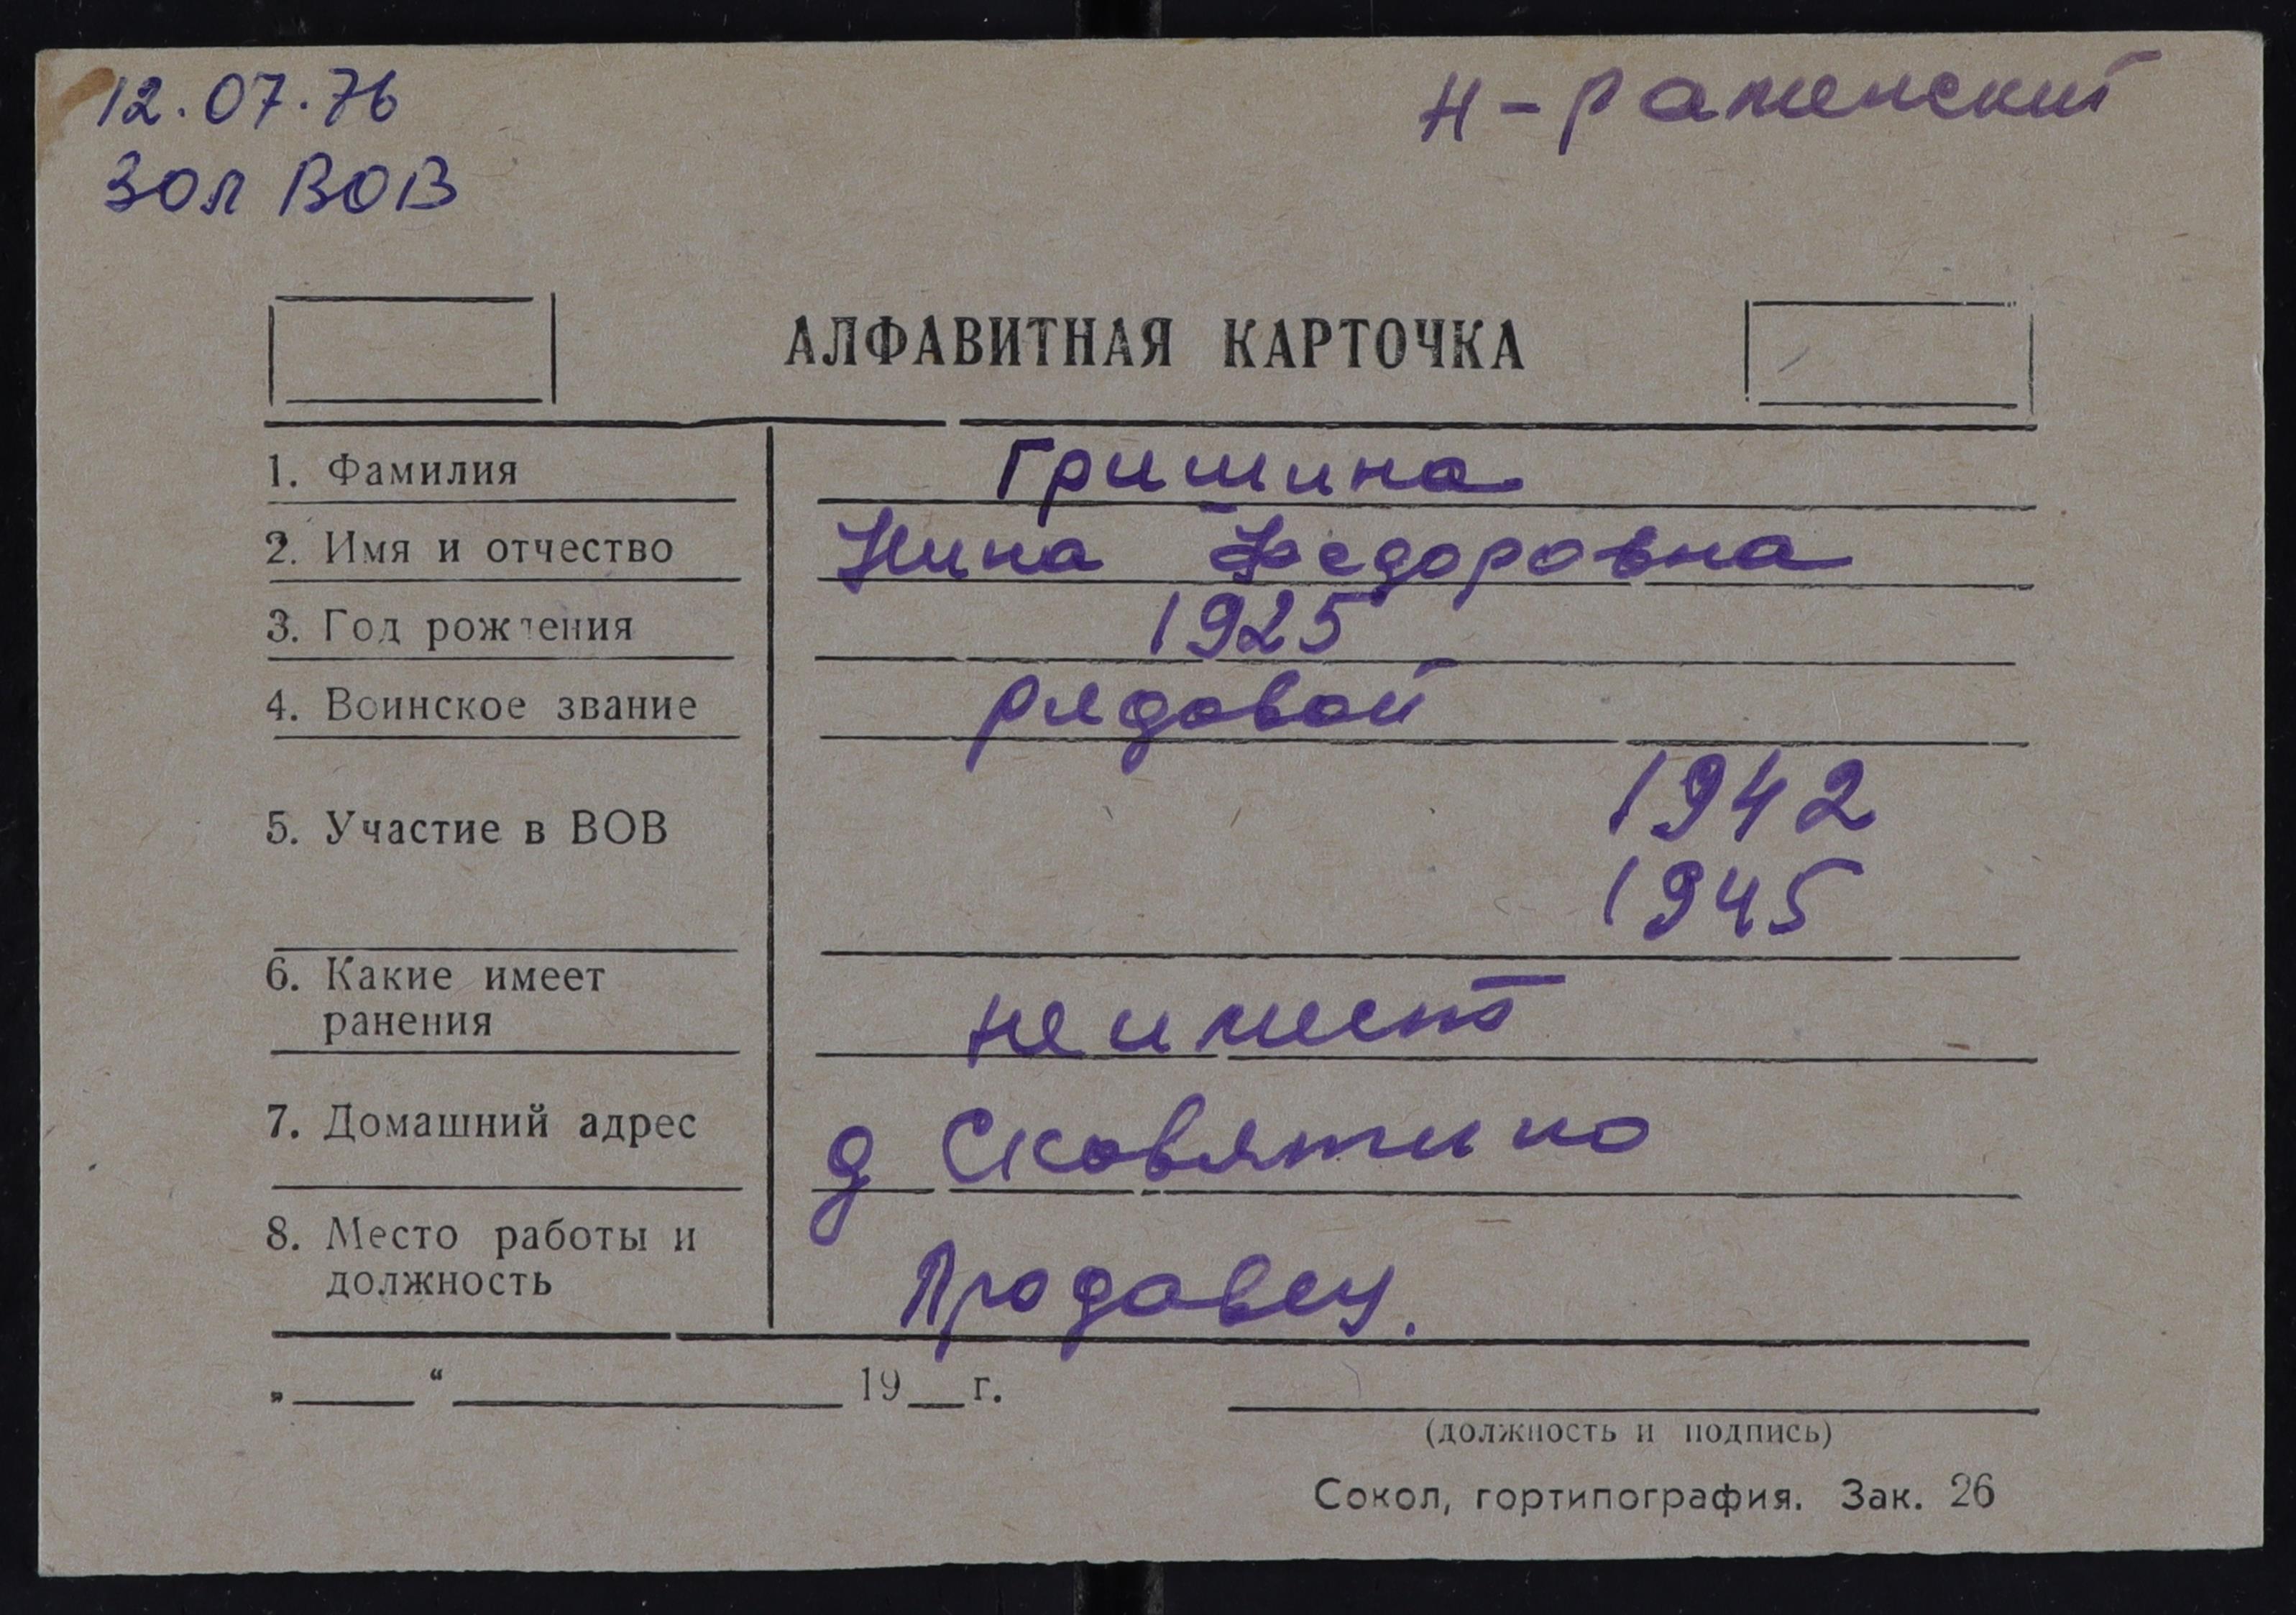 12.07.76
Н-раменский
Зол ВОВ
АЛФАВИТНАЯ КАРТОЧКА
1. Фамилия Гришина
2. Имя и отчество Нина Федоровна
3. Год рождения 1925
4. Воинское звание рядовой
1942
5. Участие в ВОВ
1945
6. Какие имеет
ранения не имеет
7. Домашний адрес д Сковятино
8. Место работы и
должность Продавец.
„ “ 19 г.
(должность и подпись)
Сокол, гортипография. Зак. 26